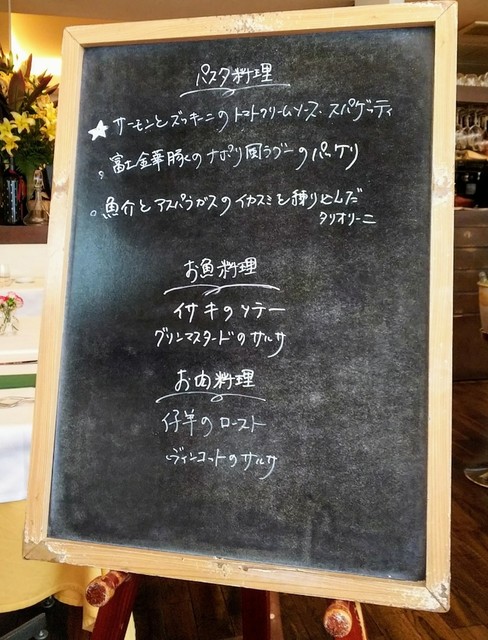 パスタ料理
★サーモンとズッキーニのトマトクリームソース・スパゲッティ
。富士金華豚のナポリ風ラグーのパッケリ
。魚介とアスパラガスのイカスミを練り込んだ
タリオリーニ
お魚料理
イサキのソテー
グリーンマスタードのサルサ
お肉料理
仔羊のロースト
ヴィンコットのサルサ